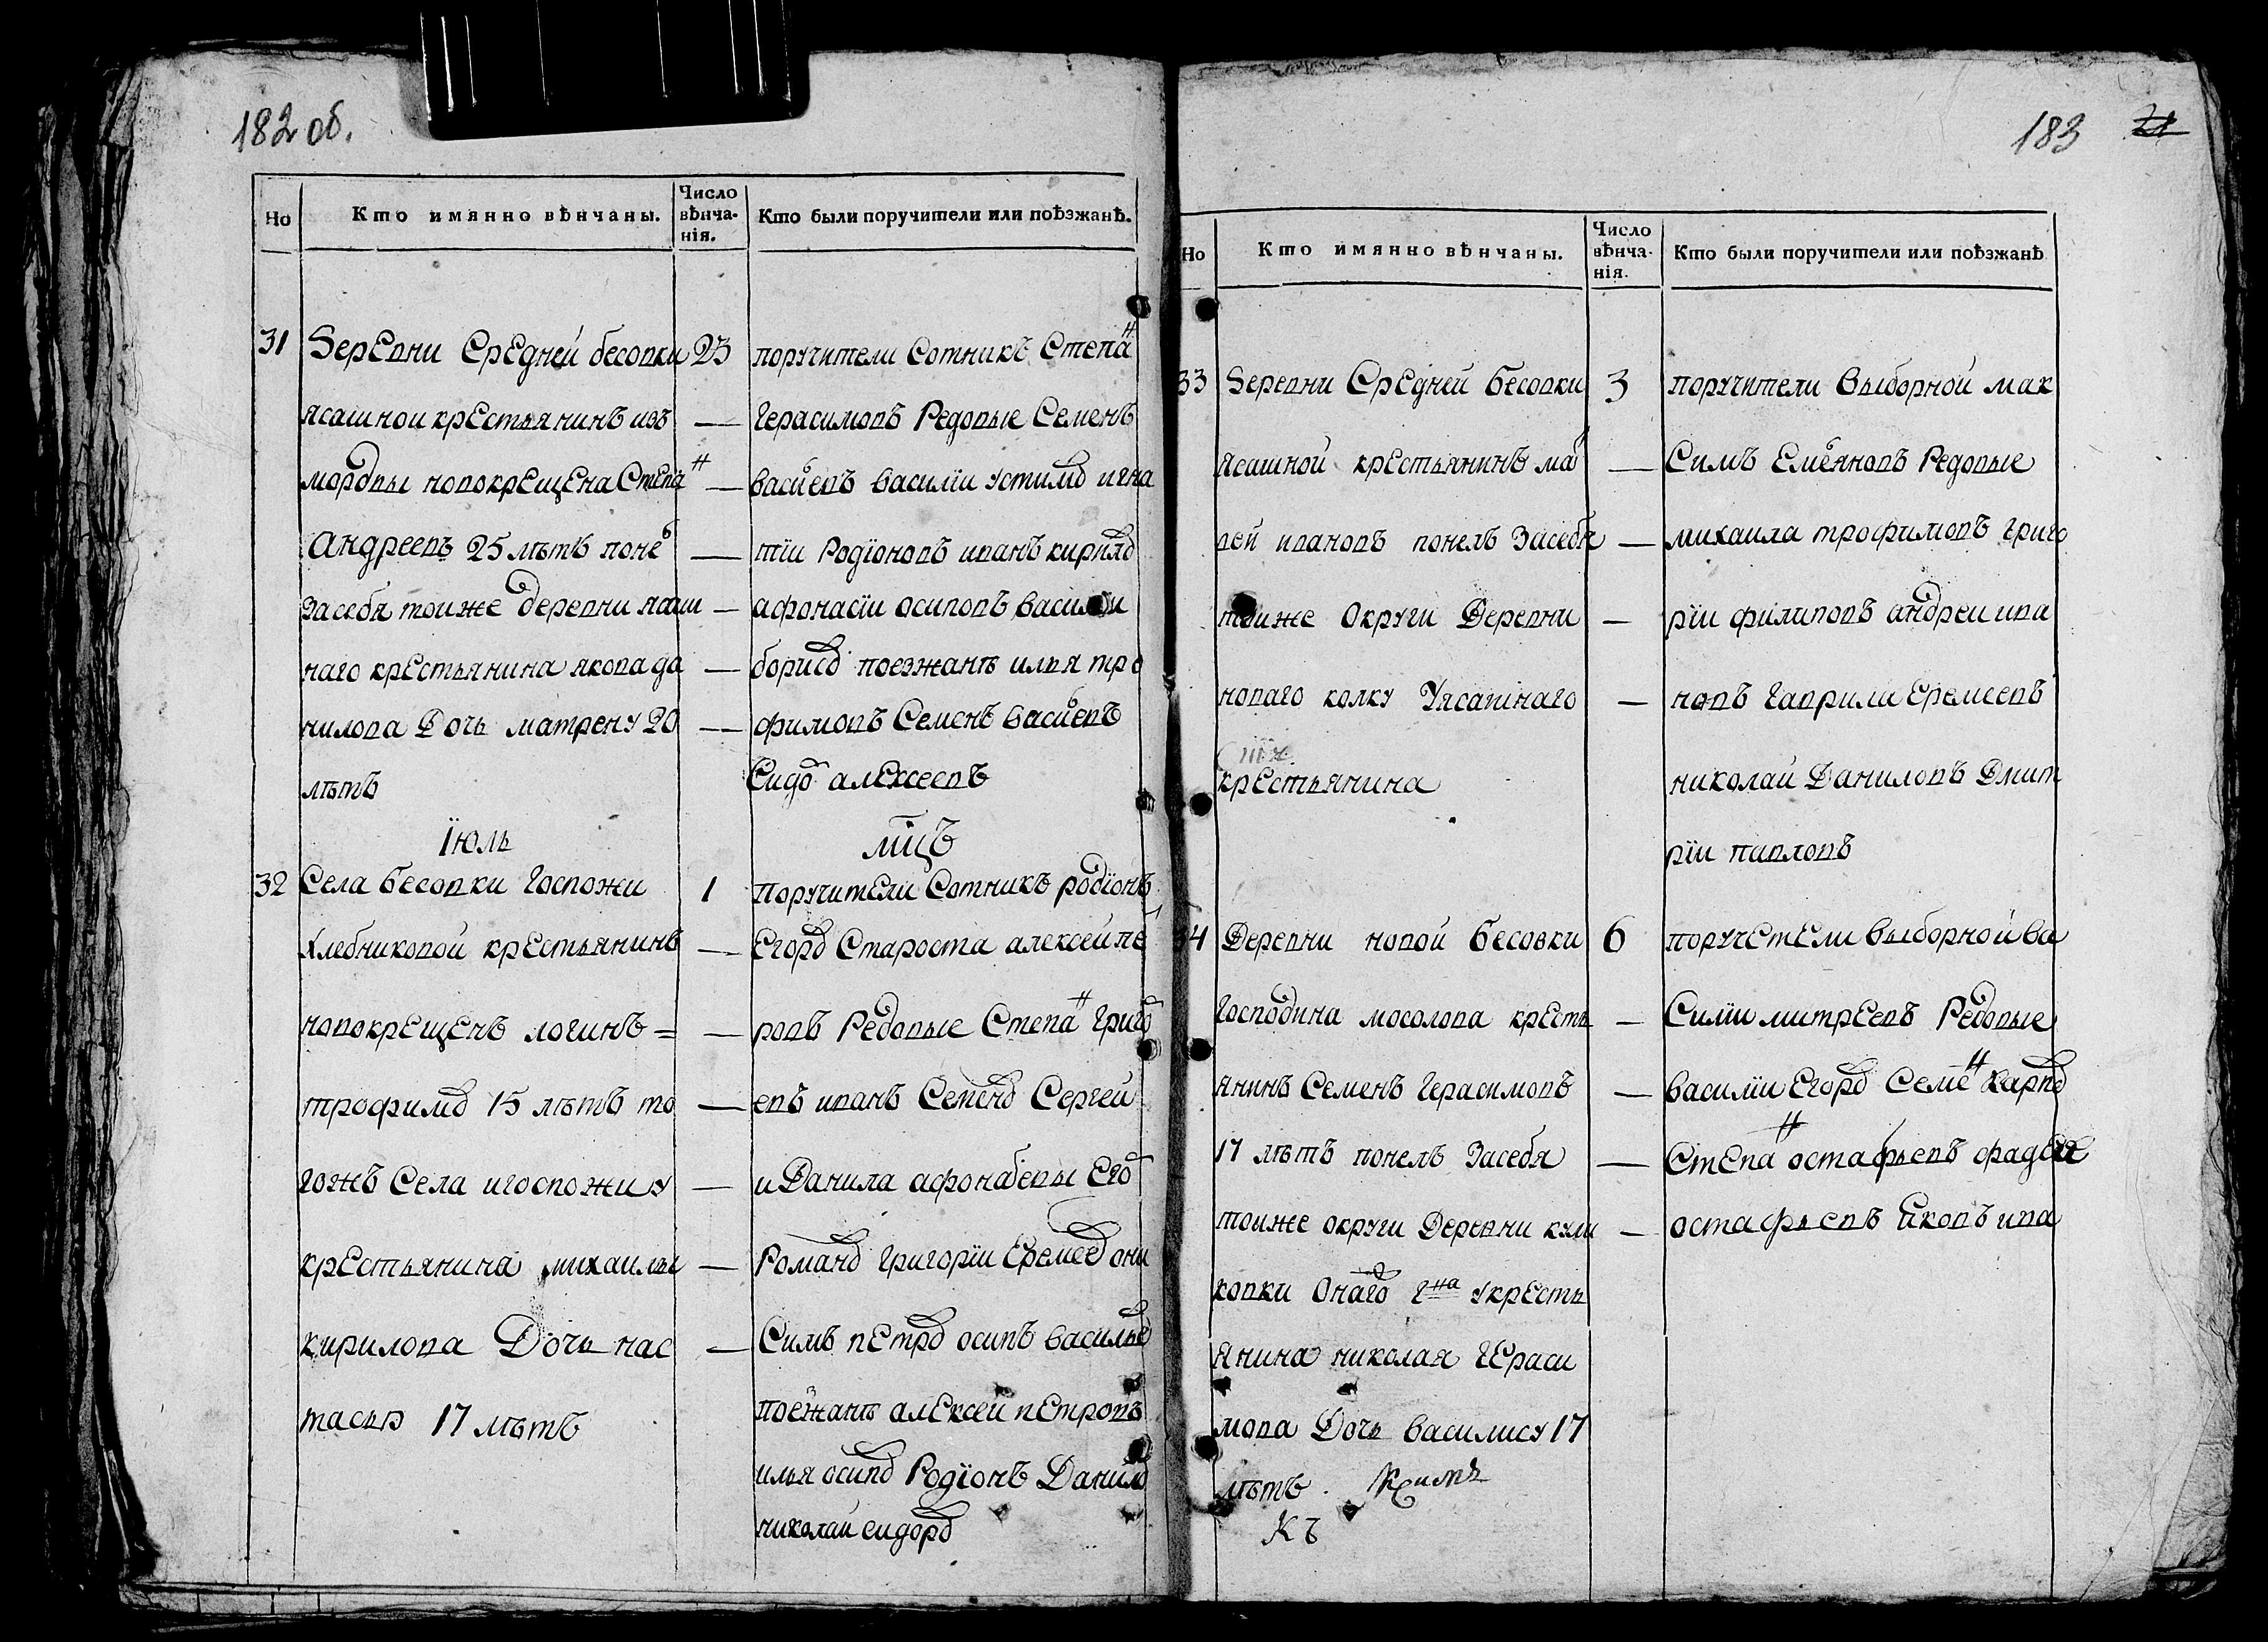 182 об.
Но
Кто имянно вѣнчаны.
Число вѣнча-
нія.
Кто были поручители или поѣзжанѣ.
31 Деревни Средней бесовки 23
ясашнои крестьянинъ изъ —
мордвы новокрещена Степан —
Андреевъ 25 лѣтъ понел —
засебя тоиже деревни ясаш —
наго крестьянина якова да —
нилова Дочь матрену 20 —
лѣтъ
поручители Сотникъ Степан
Герасимовъ Редовые Семенъ
васильевъ василіи устимов игна
тіи Родіоновъ иванъ кирилов
афонасіи осиповъ василеи
борисов поезжанѣ илья тро
фимовъ Семенъ васильевъ
Сидор алексеевъ
Іюль мцъ
32 Села бесовки Госпожи 1
Хлебниковой крестьянинъ —
новокрещенъ логинъ = —
трофимов 15 лѣтъ то —
гожъ Села и госпожи у —
крестьянина михаилы —
кирилова Дочь нас —
тасью 17 лѣтъ
поручители Сотникъ родіонъ
Егоров Староста алексеи пе
ровъ Редовые Степан григор
евъ иванъ Семенов Сергеи
и Данила афонасевы Егор
Романов григоріи Еремеев они
Симъ петров осипъ васильев
поежанѣ алексеи петровъ
илья осипов Родіонъ Данилов
николаи сидоров
183 21
Но
Кто имянно вѣнчаны.
Число
вѣнча-
нія.
Кто были поручители или поѣзжанѣ
33 Деревни Средней бесовки 3
ясашной крестьянинъ мат —
вей ивановъ понелъ Засебя —
тоиже Округи Деревни —
новаго колку Уясашнаго —
крестьянина
поручители выборной мак
Симъ Емеляновъ Редовые
михаила трофимовъ григо
ріи филиповъ андреи ива
новъ Гаврила Еремеевъ
николаи Даниловъ Дмит
ріи павловъ
34 Деревни новой бесовки 6
Господина мосолова кресть —
янинъ Семенъ Герасимовъ —
17 лѣтъ понелъ Засебя —
тоиже округи Деревни кули —
ковки Онаго гна укресть
янина николая Гераси
мова Дочь василису 17
лѣтъ
Къ
поручетели выборной ва
Силіи митреевъ Редовые
василіи Егоров Семен Карпов
Степан остафьевъ фадей
остафьевъ яковъ ива